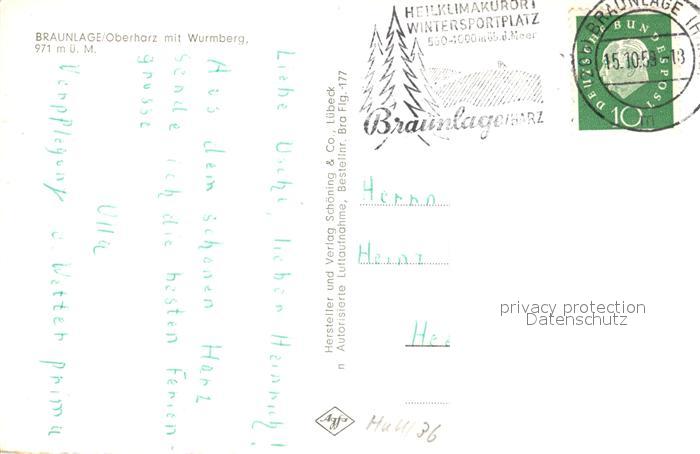 BRAUNLAGE/Oberharz mit Wurmberg,
971 m ü. M.
Liebe Uschi, lieber Heinrich!
Aus dem schönen Harz
sende ich die besten Ferien-
grüsse
Ulla
Verpflegung u. Wetter prima
Hersteller und Verlag Schöning & Co., Lübeck
Autorisierte Luftaufnahme, Bestellnr. Bra Flg.-177
HEILKLIMAKURORT
WINTERSPORTPLATZ
550-1000m üb.d.Meer
Braunlage HARZ
BRAUNLAGE (H
15.10.59 - 18
m
DEUTSCHE BUNDESPOST
10
Herrn
Heinr
He
privacy protection
Datenschutz
36